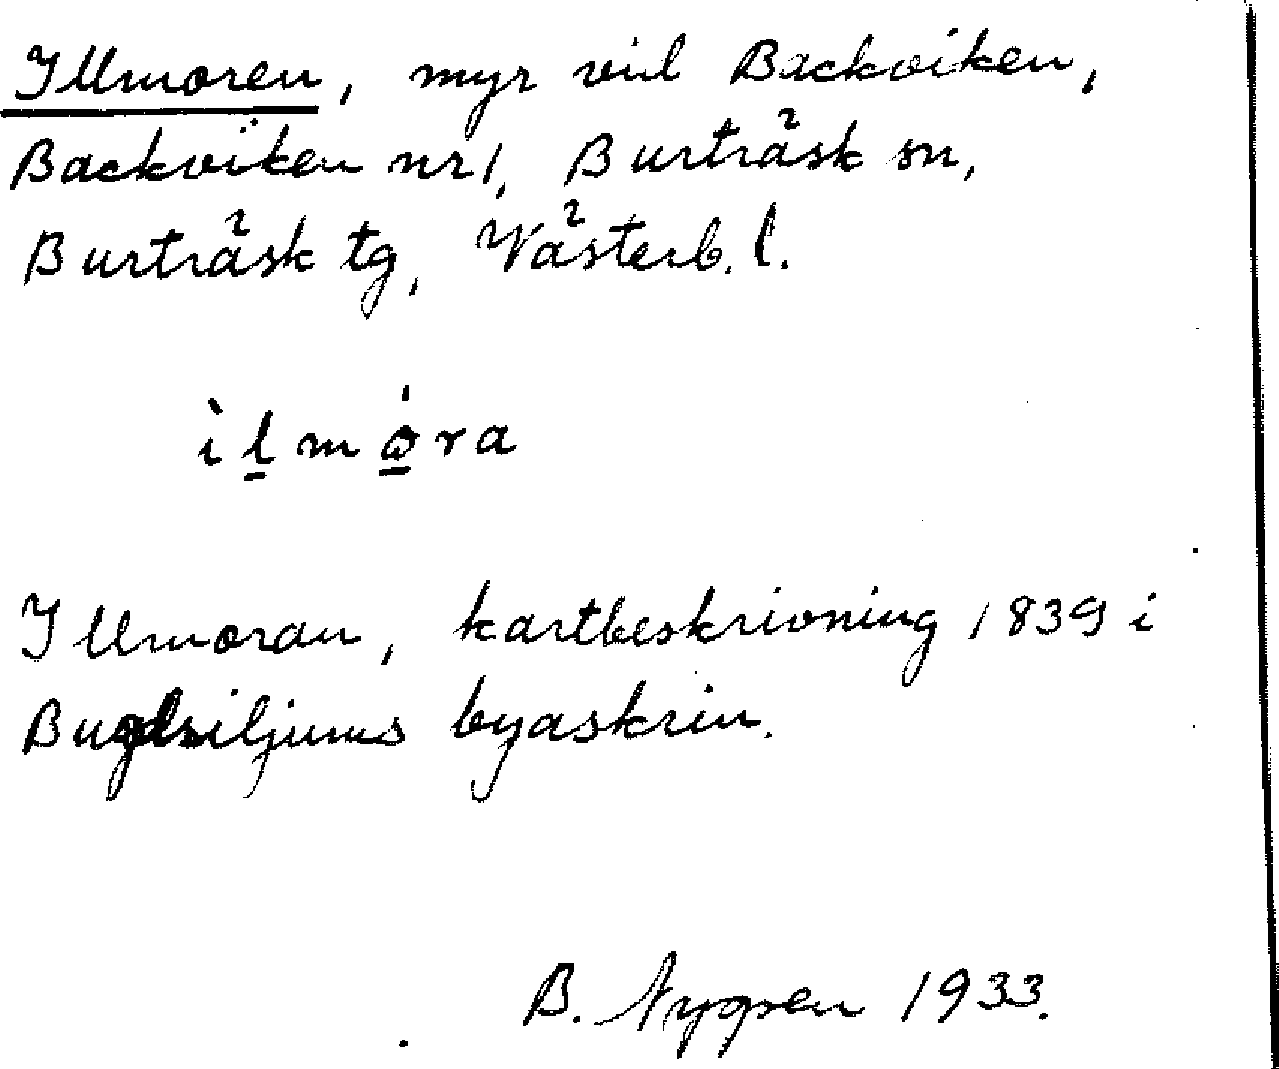 Illmoren, myr vid Backviken,
Backviken nr 1, Burträsk sn,
Burträsk tg, Västerb. l.
ìl̲mò̲ra
Illmoran, kartbeskrivning 1839 i
Bygdsiljums byaskrin.
B. Nygren 1933.